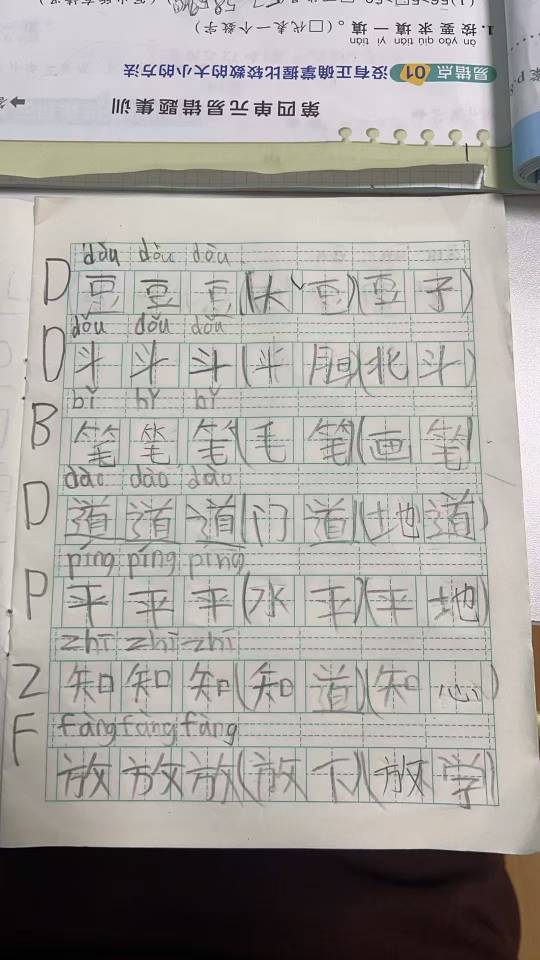 1. 按要求填一填。(□代表一个数字)
àn yāo qiú tián yi tián
易错点 01 没有正确掌握比较数的大小的方法
第四单元易错题集训
dòu dòu dòu
D 豆 豆 豆 (大、豆) (豆子)
dǒu dǒu dǒu
D 斗 斗 斗 (半 胆) (北斗)
bǐ bǐ bǐ
B 笔 笔 笔 (毛笔) (画笔)
dào dào dào
D 道 道 道 (门道) (地道)
píng píng píng
P 平 平 平 (水平) (平地)
zhī zhī zhī
Z 知 知 知 (知道) (知心)
fàng fàng fàng
F 放 放 放 (放下) (放学)